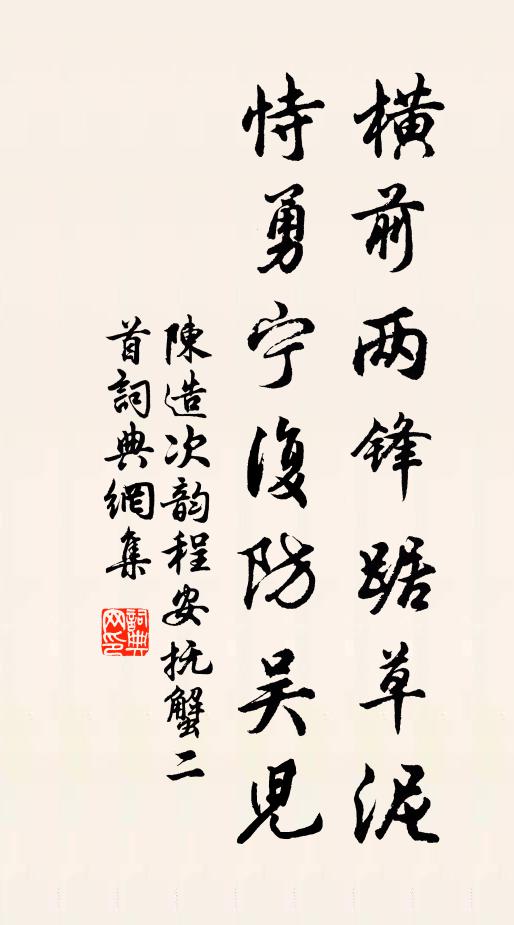 横前两锋踞草泥
恃勇宁復防吴児
陳造次韵程安抚蟹二
首詞典網集
詞典网印